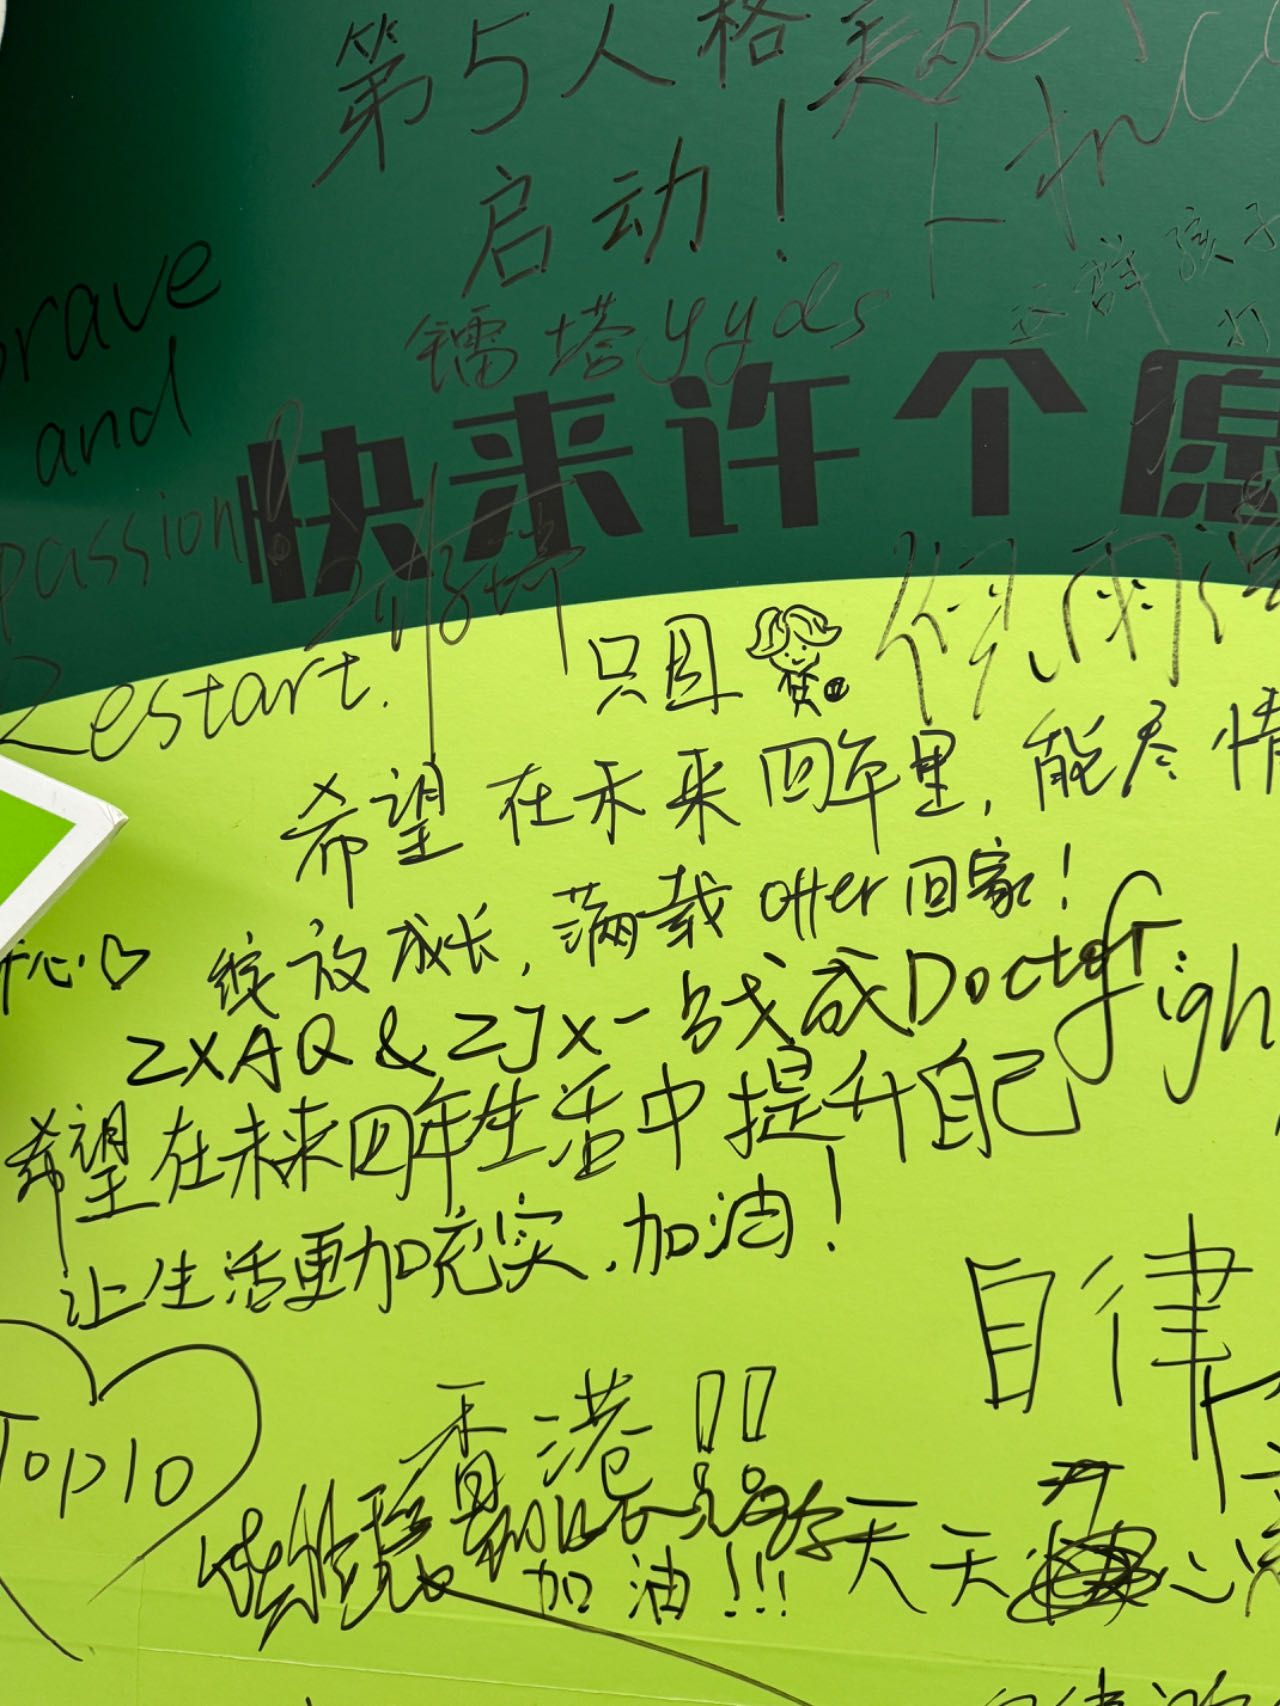 第5人格
启动！
镭塔yyds
这群孩子
brave
and
passion!
快来许个愿
Restart.
只因
希望在未来四年里，能尽情
绽放成长，满载offer回家！
开心♡
ZXAQ & ZJX一战成Doctor
Figh
希望在未来四年生活中提升自己
让生活更加充实，加油！
自律
香港！！
Top10
加油！！！
天天开心